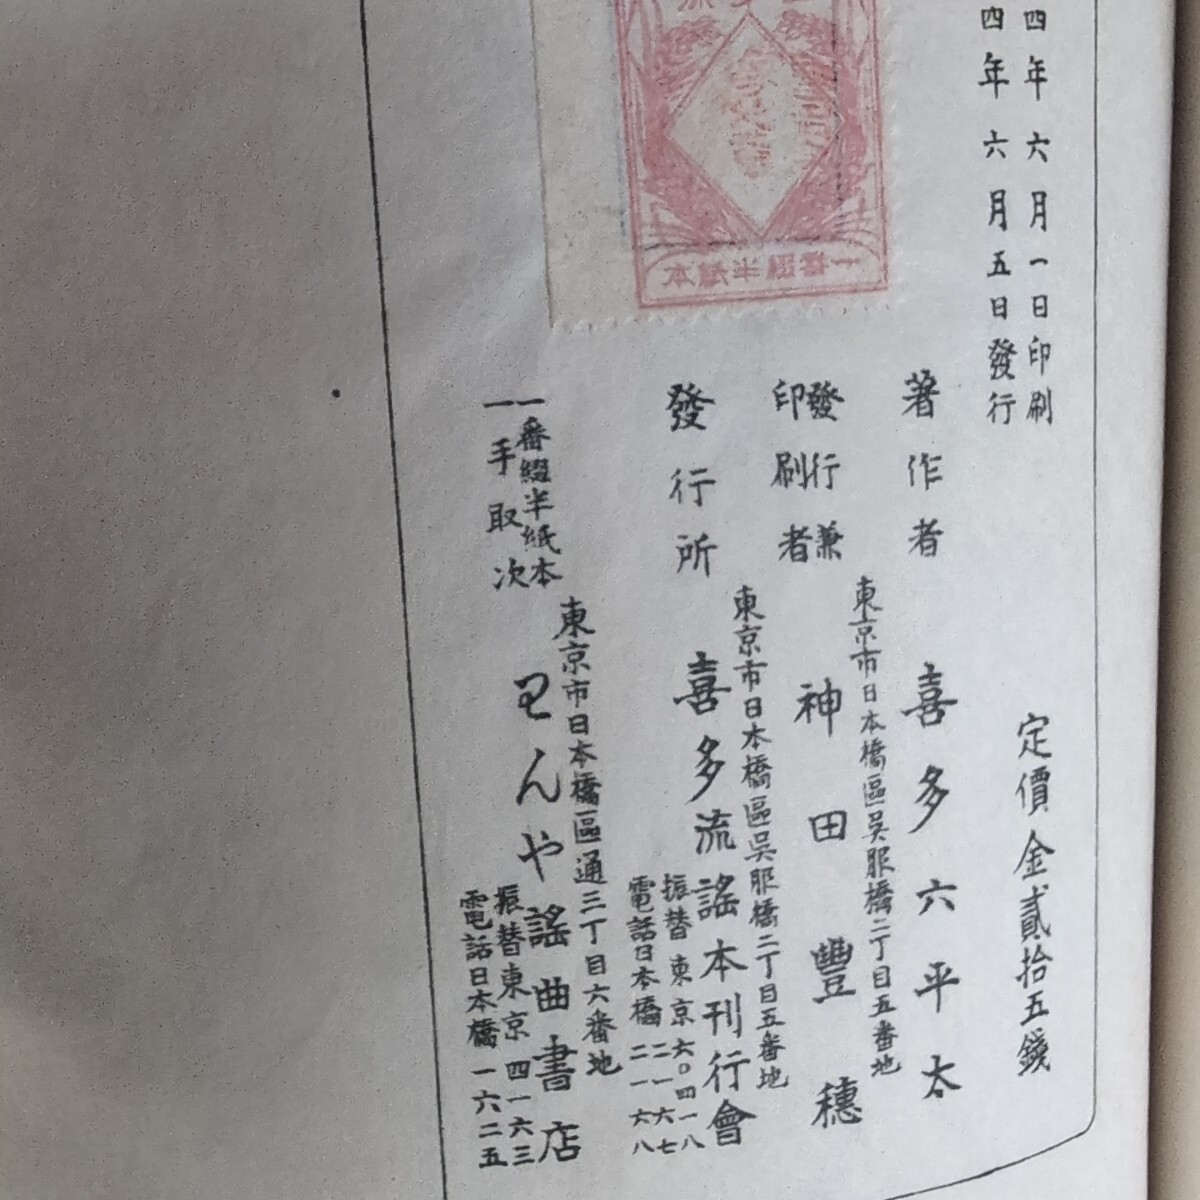 四年六月一日印刷
四年六月五日發行
定價金貳拾五錢
著作者 喜多六平太
東京市日本橋區呉服橋二丁目五番地
發行兼
印刷者 神田豐穗
東京市日本橋區呉服橋二丁目五番地
發行所 喜多流謠本刊行會
振替東京六〇四一八
電話日本橋二一六七
二一六八
一番綴半紙本
一手取次
東京市日本橋區通三丁目六番地
わんや謠曲書店
振替東京四一六三
電話日本橋一六二五
一番綴半紙本